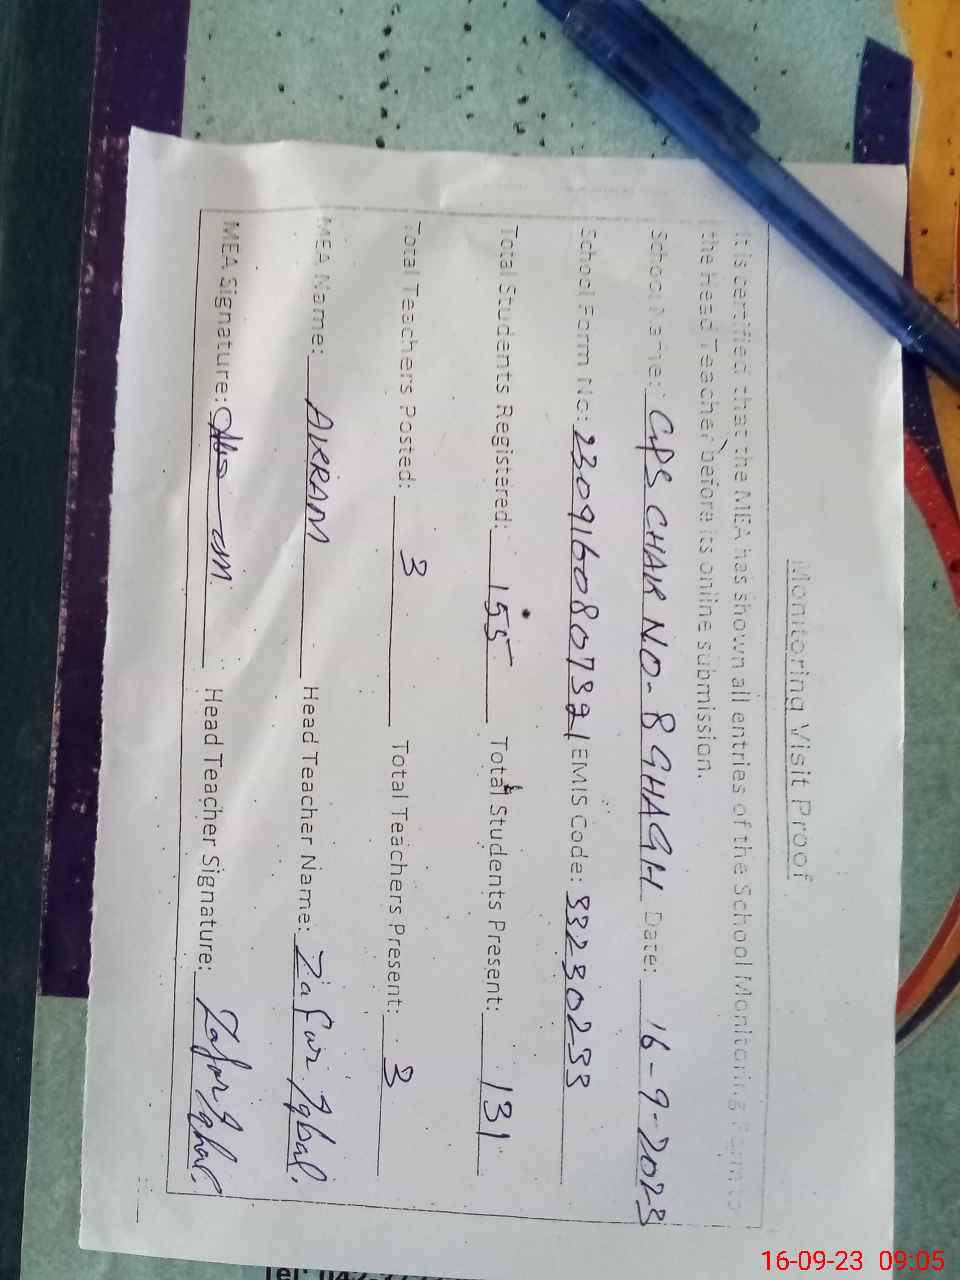 Monitoring Visit Proof
It is certified that the MEA has shown all entries of the School Monitoring Form to
the Head Teacher before its online submission.
School Name: GPS CHAK NO-8 GHAGH Date: 16-9-2023
School Form No: EMIS Code: 33230233
Total Students Registered: 155 Total Students Present: 131
Total Teachers Posted: 3 Total Teachers Present: 3
MEA Name: AKRAM Head Teacher Name: Zafar Iqbal.
MEA Signature: Head Teacher Signature: Zafar Iqbal.
Tel: 042-
16-09-23 09:05